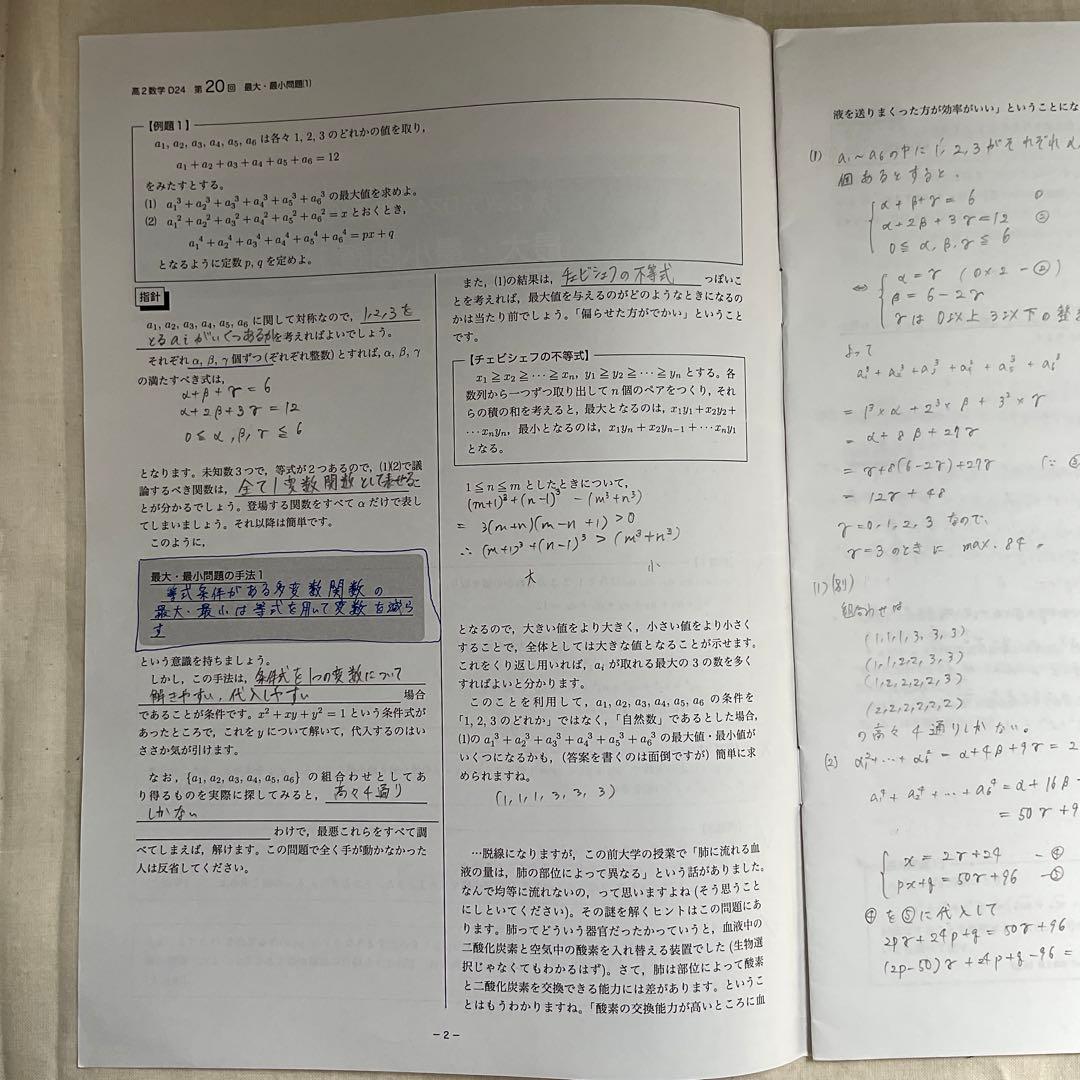 高2数学 D24 第20回 最大・最小問題(1)
【例題1】
a₁, a₂, a₃, a₄, a₅, a₆ は各々 1, 2, 3 のどれかの値を取り,
a₁ + a₂ + a₃ + a₄ + a₅ + a₆ = 12
をみたすとする。
(1) a₁³ + a₂³ + a₃³ + a₄³ + a₅³ + a₆³ の最大値を求めよ。
(2) a₁² + a₂² + a₃² + a₄² + a₅² + a₆² = x とおくとき,
a₁⁴ + a₂⁴ + a₃⁴ + a₄⁴ + a₅⁴ + a₆⁴ = px + q
となるように定数 p, q を定めよ。
指針
a₁, a₂, a₃, a₄, a₅, a₆ に関して対称なので, 1,2,3を
とるaiがいくつあるかを考えればよいでしょう。
それぞれ α, β, γ 個ずつ (ぞれぞれ整数) とすれば, α, β, γ
の満たすべき式は,
α+β+γ=6
α+2β+3γ=12
0≦α,β,γ≦6
となります。未知数3つで, 等式が2つあるので, (1)(2)で議
論するべき関数は, 全て1変数関数として表せるこ
とが分かるでしょう。登場する関数をすべて α だけで表し
てしまいましょう。それ以降は簡単です。
このように,
最大・最小問題の手法1
等式条件がある多変数関数の
最大・最小は等式を用いて変数を減ら
す
という意識を持ちましょう。
しかし, この手法は, 条件式を1つの変数について
解きやすい, 代入しやすい 場合
であることが条件です。x² + xy + y² = 1 という条件式が
あったところで, これを y について解いて, 代入するのはい
ささか気が引けます。
なお, {a₁, a₂, a₃, a₄, a₅, a₆} の組合わせとしてあ
り得るものを実際に探してみると, 高々4通り
しかない
わけで, 最悪これらをすべて調
べてしまえば, 解けます。この問題で全く手が動かなかった
人は反省してください。
また, (1)の結果は, チェビシェフの不等式 っぽいこ
とを考えれば, 最大値を与えるのがどのようなときになるの
かは当たり前でしょう。「偏らせた方がでかい」ということ
です。
【チェビシェフの不等式】
x₁ ≧ x₂ ≧ ⋯ ≧ xₙ, y₁ ≧ y₂ ≧ ⋯ ≧ yₙ とする。各
数列から一つずつ取り出して n 個のペアをつくり, それ
らの積の和を考えると, 最大となるのは, x₁y₁ + x₂y₂ +
⋯xₙyₙ, 最小となるのは, x₁yₙ + x₂yₙ₋₁ + ⋯xₙy₁
となる。
1 ≦ n ≦ m としたときについて,
(m+1)³+(n-1)³-(m³+n³)
= 3(m+n)(m-n+1)>0
∴ (m+1)³+(n-1)³ > (m³+n³)
大 小
となるので, 大きい値をより大きく, 小さい値をより小さく
することで, 全体としては大きな値となることが示せます。
これをくり返し用いれば, aᵢ が取れる最大の3の数を多く
すればよいと分かります。
このことを利用して, a₁, a₂, a₃, a₄, a₅, a₆ の条件を
「1, 2, 3 のどれか」ではなく, 「自然数」であるとした場合,
(1)の a₁³ + a₂³ + a₃³ + a₄³ + a₅³ + a₆³ の最大値・最小値が
いくつになるかも, (答案を書くのは面倒ですが) 簡単に求
められますね。
(1,1,1,3,3,3)
…脱線になりますが, この前大学の授業で「肺に流れる血
液の量は, 肺の部位によって異なる」という話がありました。
なんで均等に流れないの, って思いますよね (そう思うこと
にしといてください)。その謎を解くヒントはこの問題にあ
ります。肺ってどういう器官だったかっていうと, 血液中の
二酸化炭素と空気中の酸素を入れ替える装置でした (生物選
択じゃなくてもわかるはず)。さて, 肺は部位によって酸素
と二酸化炭素を交換できる能力には差があります。というこ
とはもうわかりますね。「酸素の交換能力が高いところに血
－2－
液を送りまくった方が効率がいい」ということにな
(1) a₁~a₆の中に1,2,3がそれぞれα
個あるとすると、
α+β+γ=6 ①
α+2β+3γ=12 ②
0≦α,β,γ≦6
⇔ α=γ (①×2-②)
β=6-2γ
γは0以上3以下の整
よって
a₁³+a₂³+a₃³+a₄³+a₅³+a₆³
= 1³×α+2³×β+3³×γ
= α+8β+27γ
= γ+8(6-2γ)+27γ (∵ ③
= 12γ+48
γ=0,1,2,3 なので、
γ=3のときに max. 84。
(1)(別)
組合わせは
(1,1,1,3,3,3)
(1,1,2,2,3,3)
(1,2,2,2,2,3)
(2,2,2,2,2,2)
の高々4通りしかない。
(2) a₁²+…+a₆²=α+4β+9γ=2
a₁⁴+a₂⁴+…+a₆⁴=α+16β
= 50γ+9
x=2γ+24 -④
px+q=50γ+96 -⑤
④を⑤に代入して
2pγ+24p+q=50γ+96
(2p-50)γ+24p+q-96=